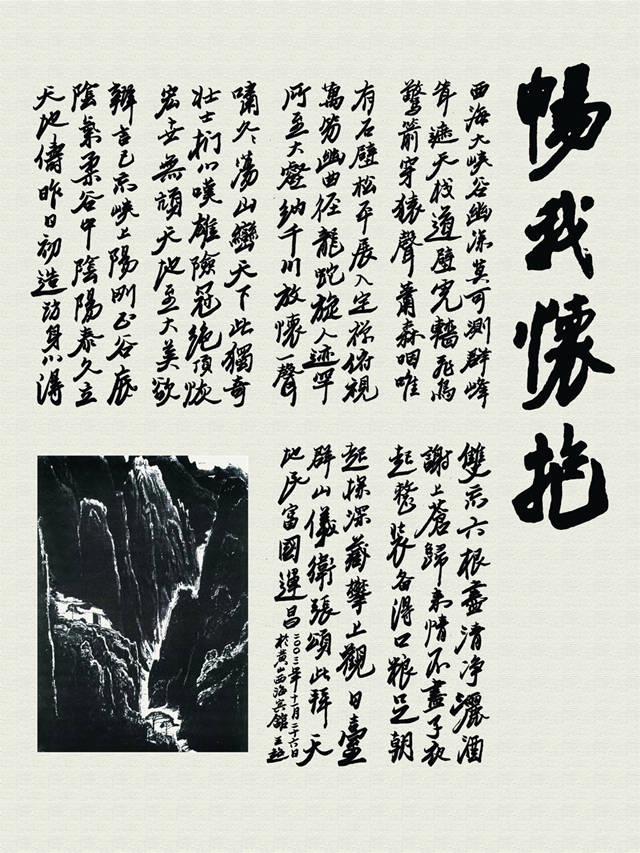 暢我懷抱
西海大峽谷幽深莫可測群峰
聳遮天棧道壁宛轉飛鳥
驚箭穿猿聲蕭森咽唯
有石壁松平展入定禪俯視
萬勞幽曲徑龍蛇旋人跡罕
所至大壑納千川放懷一聲
嘯久久蕩山巒天下此獨奇
壯士心嘆雄險冠絕頂恢
宏無天地至大美欲
辯言已忘峽上陽剛正谷底
陰氣柔谷中陰陽泰久立
天地儔昨日初造訪身心得
雙忘六根盡清淨灑酒
謝上蒼歸來情不盡子夜
起整裝备得口粮足朝
起探深藏攀上觀日臺
群山儀衛張頌此拜天
地民富國運昌
二〇〇三年十一月二十六日
於黃山西海賓館